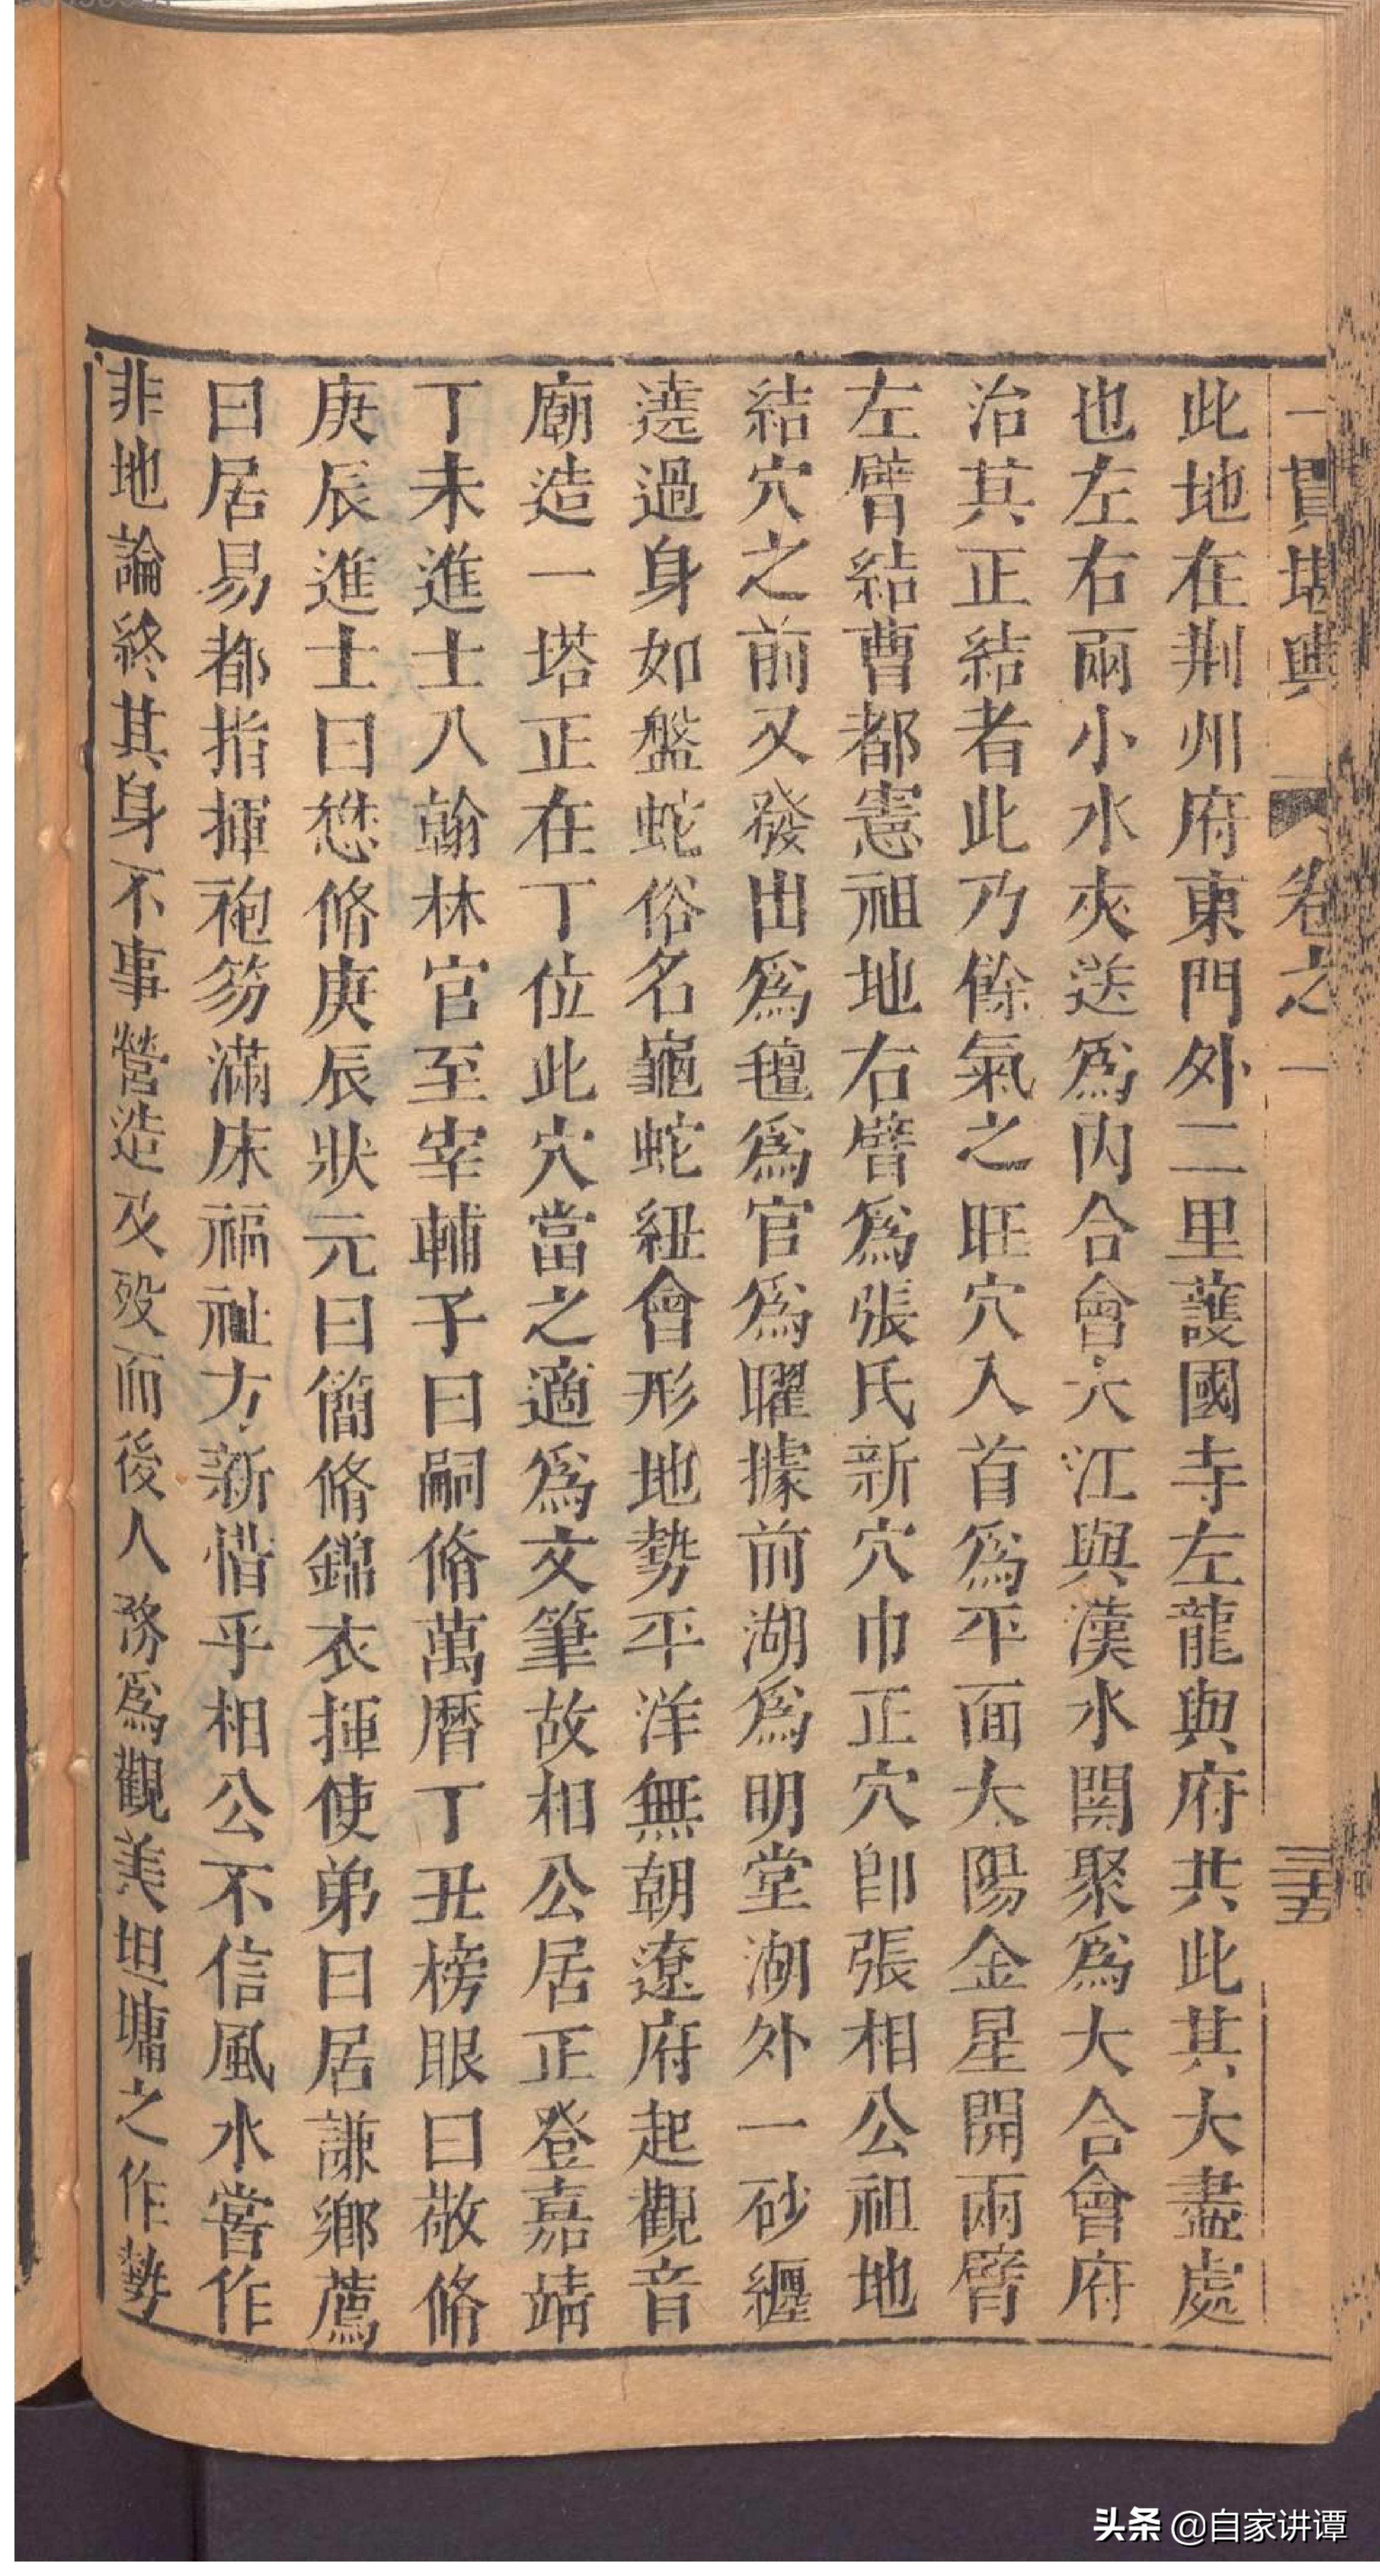 一貫堪輿 卷之一 三十五
此地在荆州府東門外二里護國寺左龍與府共此其大盡處
也左右兩小水夾送爲内合會大江與漢水関聚爲大合會府
治其正結者此乃餘氣之旺穴入首爲平面太陽金星開兩臂
左臂結曹都憲祖地右臂爲張氏新穴巾正穴卽張相公祖地
結穴之前又發出爲氊爲官爲曜據前湖爲明堂湖外一砂纒
遶過身如盤蛇俗名龜蛇紐會形地勢平洋無朝遼府起觀音
廟造一塔正在丁位此穴當之適爲文筆故相公居正登嘉靖
丁未進士入翰林官至宰輔子曰嗣脩萬曆丁丑榜眼曰敬脩
庚辰進士曰懋脩庚辰狀元曰簡脩錦衣揮使弟曰居謙鄉薦
曰居易都指揮袍笏滿床福祉方新惜乎相公不信風水嘗作
非地論終其身不事營造及歿而後人務爲觀美坦墉之作勢
头条 @自家讲谭